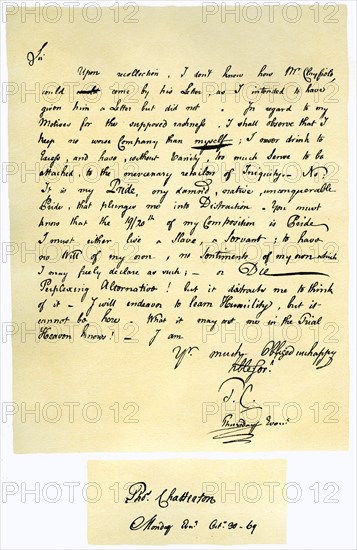 Sir
Upon recollection, I don't know how Mr. Clayfield
could come by his Letter, as I intended to have
given him a Letter but did not. In regard to my
Motives for the supposed rashness, I shall observe that I
keep no worse Company than myself; I never drink to
Excess, and have, without Vanity, too much Sense to be
attached to the mercenary retailers of Iniquity – No!
It is my Pride, my damn'd, native, unconquerable
Pride, that plunges me into Distraction – You must
know that the 19/20th of my Composition is Pride
I must either live a Slave, a Servant; to have
no Will of my own, no Sentiments of my own which
I may freely declare as such; – or Die
Perplexing Alternative! but it distracts me to think
of it – I will endeavor to learn Humility, but it
cannot be here. What it may cost me in the Trial
Heaven knows! – I am
Yr. much Obliged unhappy
T. C.
Thursday Eveng.
Thos. Chatterton
Monday Octr. 30 – 69
PHOTO 12